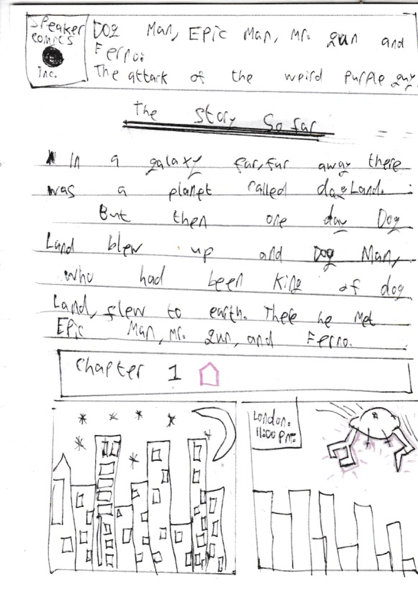 Speaker
comics
inc.
Dog Man, Epic Man, Mr. gun and
Ferro:
The attack of the weird purple guy.
The story so far
In a galaxy far, far away there
was a planet called dogLand.
But then one day Dog
Land blew up and Dog Man,
who had been King of dog
Land, flew to earth. There he met
Epic Man, Mr. gun, and Ferro.
Chapter 1
London.
11:00 Pm.